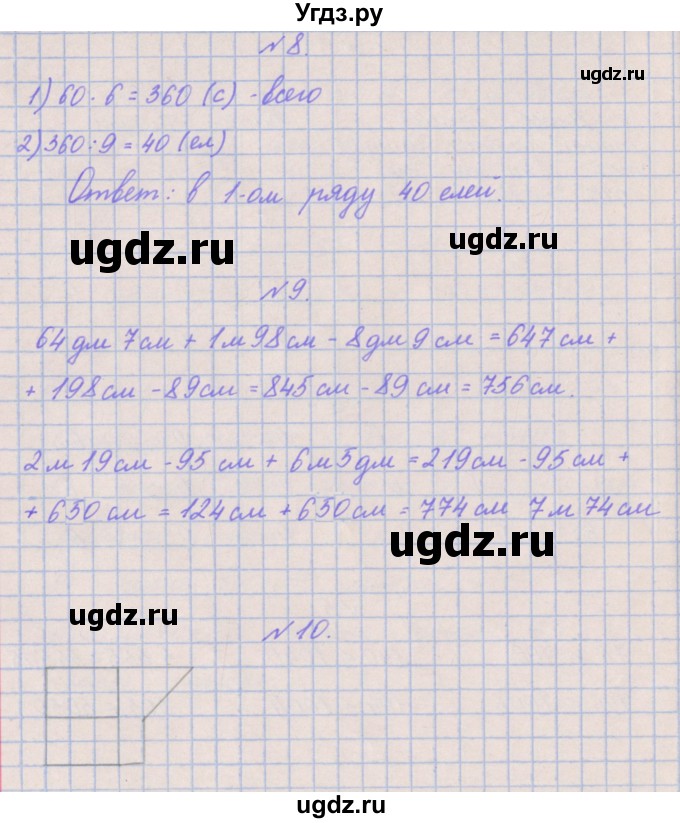 Угдз.ру
№8.
ugdz.ru
1) 60 · 6 = 360 (с) - всего
2) 360 : 9 = 40 (ел)
Ответ: в 1-ом ряду 40 елей.
ugdz.ru
ugdz.ru
№9.
64 дм 7 см + 1 м 98 см - 8 дм 9 см = 647 см +
+ 198 см - 89 см = 845 см - 89 см = 756 см.
2 м 19 см - 95 см + 6 м 5 дм = 219 см - 95 см +
+ 650 см = 124 см + 650 см = 774 см 7 м 74 см
ugdz.ru
ugdz.ru
№10.
ugdz.ru
ugdz.ru